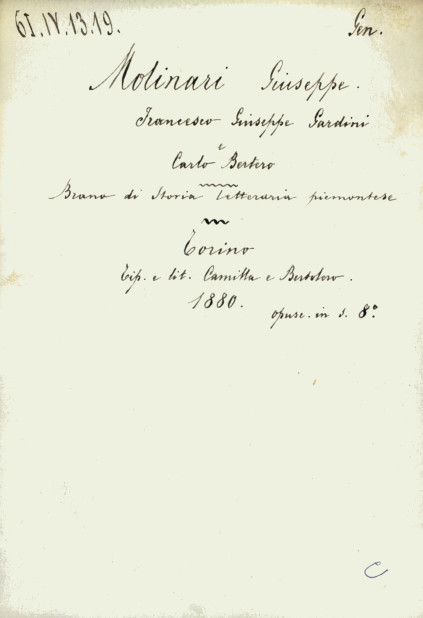 61.IV.13.19.
Gen.
Molinari Giuseppe.
Francesco Giuseppe Gardini
e
Carlo Bertero
Brano di Storia letteraria piemontese
Torino
Tip. e lit. Camilla e Bertolero.
1880.
opusc. in s. 8°
C